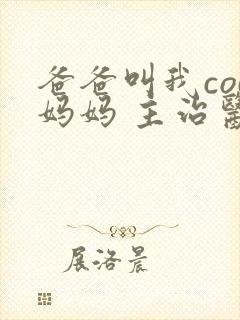 爸爸叫我co
妈妈 主治
展洛晨